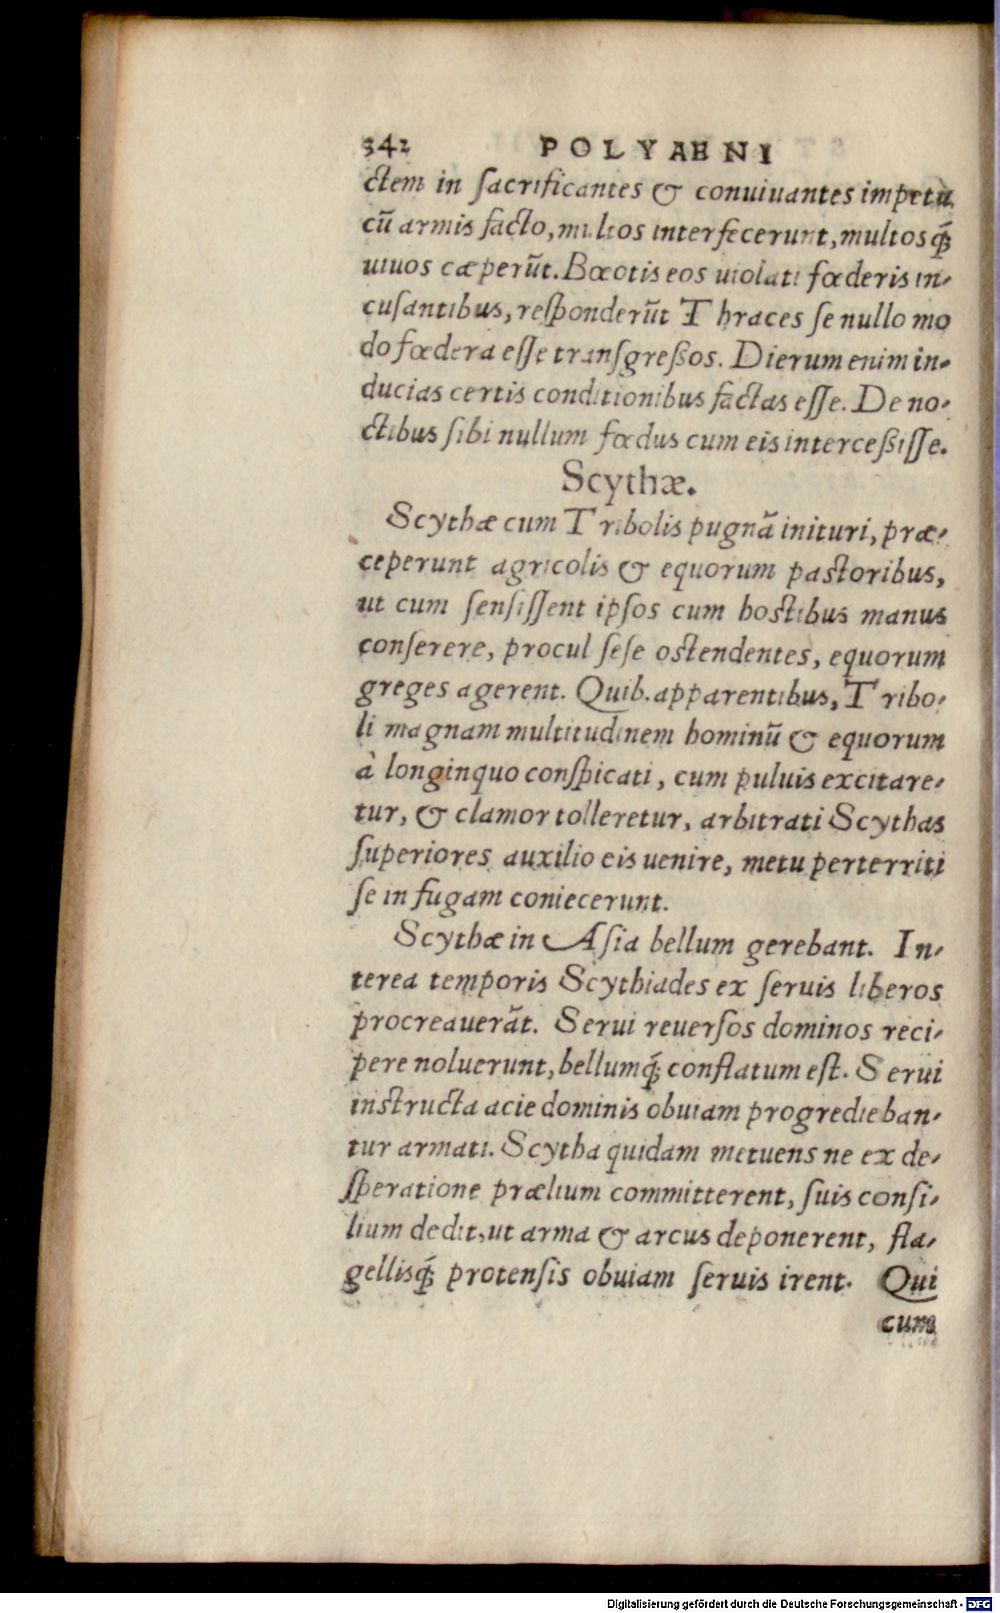 342 POLYAENI
ctem in ſacrificantes & conuiuantes impetu
cū armis facto, multos interfecerunt, multosq́;
uiuos cæperūt. Bœotis eos uiolati fœderis in-
cuſantibus, reſponderūt Thraces ſe nullo mo
do fœdera eſſe tranſgreßos. Dierum enim in-
ducias certis conditionibus factas eſſe. De no-
ctibus ſibi nullum fœdus cum eis interceßiſſe.
Scythæ.
Scythæ cum Tribolis pugnā inituri, præ-
ceperunt agricolis & equorum paſtoribus,
ut cum ſenſiſſent ipſos cum hoſtibus manus
conſerere, procul ſeſe oſtendentes, equorum
greges agerent. Quib. apparentibus, Tribo-
li magnam multitudinem hominū & equorum
à longinquo conſpicati, cum puluis excitare-
tur, & clamor tolleretur, arbitrati Scythas
ſuperiores auxilio eis uenire, metu perterriti
ſe in fugam coniecerunt.
Scythæ in Aſia bellum gerebant. In-
terea temporis Scythiades ex ſeruis liberos
procreauerāt. Serui reuerſos dominos reci-
pere noluerunt, bellumq́; conflatum eſt. Serui
inſtructa acie dominis obuiam progredieban-
tur armati. Scytha quidam metuens ne ex de-
ſperatione prælium committerent, ſuis conſi-
lium dedit, ut arma & arcus deponerent, fla-
gellisq́; protenſis obuiam ſeruis irent. Qui
cum
Digitalisierung gefördert durch die Deutsche Forschungsgemeinschaft - DFG